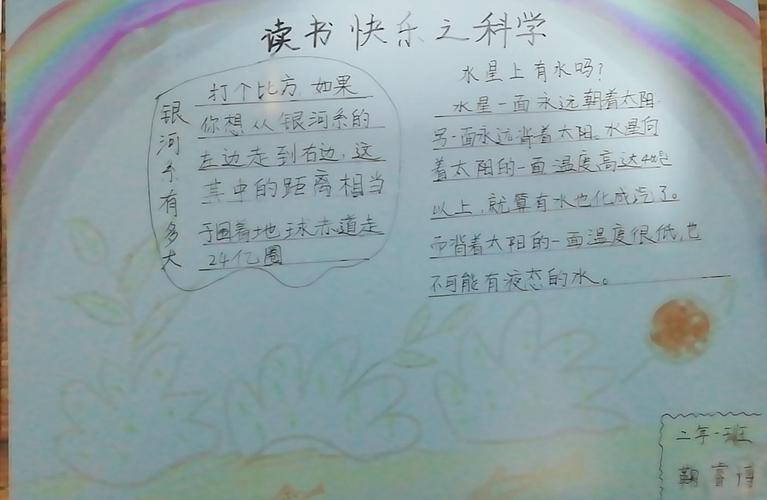 读书快乐之科学
银河系有多大
打个比方，如果
你想从银河系的
左边走到右边，这
其中的距离相当
于围着地球赤道走
24亿圈
水星上有水吗？
水星一面永远朝着太阳，
另一面永远背着太阳。水星向
着太阳的一面温度高达400℃
以上，就算有水也化成汽了。
而背着太阳的一面温度很低，也
不可能有液态的水。
二年一班